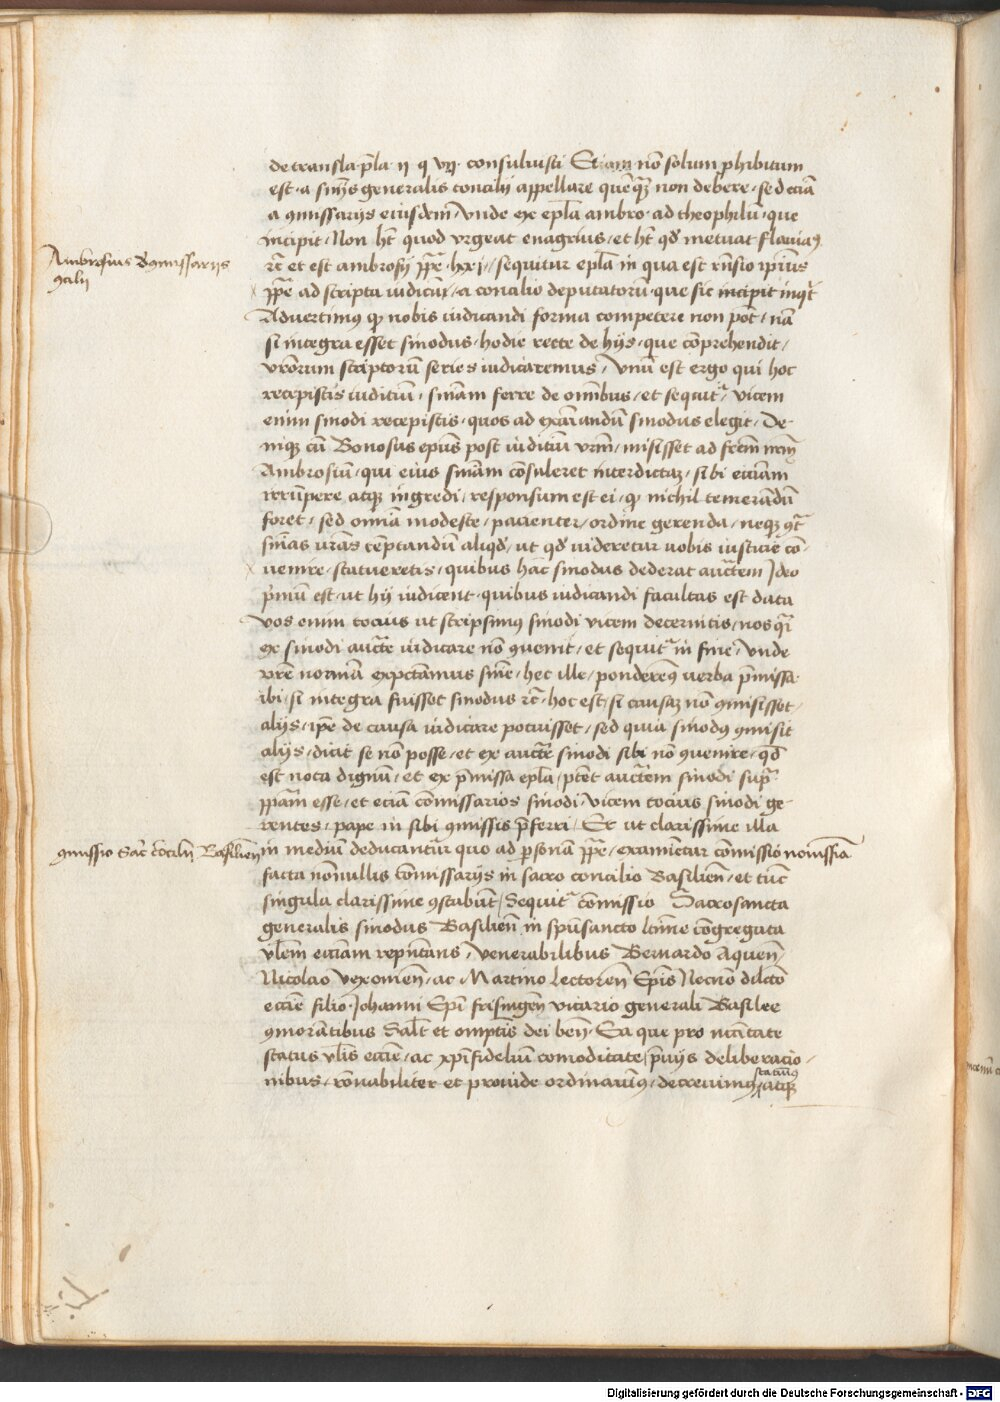 de transla. p̄la. ij q vij. consuluisti Etiam nō solum ꝓhibitum
est. a sm̄ijs generalis concilij appellare quēq̄ȝ non debere. sed eciā
a ꝯmissarijs eiusdem / vnde ex ep̄la ambro. ad theophilū. que
incipit / Non hꝫ quod vrgeat enagrius / et hꝫ qd̄ metuat flauiaꝯ
rc̄ et est ambrosij / sequitur ep̄la in qua est rn̄sio ip̄ius
Ambrosius d' ꝯmissarijs
ꝯcilij
ꝑpe ad scripta iudicū / a concilio deputatorū. que sic incipit inqͭ
Aduertimꝯ ꝙ nobis iudicandi forma competere non pōt / nā
si integra esset sinodus / hodie recte de hijs / que cōprehendit /
vr̄orum scriptorū series iudicaremus / Vnū est ergo qui hoc
recepistis iuditiū / sm̄am ferre de om̄ibus / et sequitͬ / vicem
enim sinodi recepistis / quos ad exāīandū sinodus elegit / De-
niqꝫ cū Bonosus ep̄us post iuditiū vr̄m / misisset ad frēm nr̄m
Ambrosiū / qui eius sm̄am cōsuleret interdictaꝫ / sibi ecc̄iam
irrūpere atqꝫ ingredi / responsum est ei / ꝙ nichil temerādū
foret / sed om̄ia modeste / pacienter / ordine gerenda / neqꝫ ꝯͭ
sm̄ias vr̄as tēptandū aliqd̄ / ut qd̄ uideretur uobis iusticie cō-
uenire / statueretis / quibus hāc sinodus dederat auctͭem Ideo
p̄mū est. ut hij iudicent. quibus iudicandi facultas est data
vos enim tocius ut scripsimꝯ sinodi vicem decernitis / nos qͣi
ex sinodi auctͭe iudicare nō ꝯuenit / et sequitͬ in fine / vnde
vr̄e normā expectamus sm̄ie / hec ille / ponderemꝯ uerba p̄missa
ibi / si integra fuisset sinodus rc̄. hoc est / si causaꝫ nō ꝯmisisset /
alijs / ip̄e de causa iudicare potuisset / sed quia sinodꝯ ꝯmisit
alijs / dicit se nō posse / et ex auctͭe sinodi sibi nō ꝯuenire / qd̄
est nota dignū / et ex p̄missa ep̄la / pꝫ auctͭem sinodi supͣ
ꝑpam esse / et eciā cōmissarios sinodi / vicem tocius sinodi ge-
rentes / pape in sibi ꝯmissis p̄ferri / Et ut clarissime illa
ꝯmissio Sac̄ concilij Basilien̄
in mediū deducantur quo ad ꝑsonā ꝑpe / examīetur cōmissio nouissīa
facta nōnullis cōmissarijs in sacro concilio Basilien̄ / et tūc
singula clarissime ꝯstabūt / Sequitͬ cōmissio Sacrosancta
generalis sinodus Basilien̄ in sp̄usancto lt̄īme cōgregata
vl̄em ecc̄iam rep̄ntans / Venerabilibus Bernardo Aquen̄ /
Nicolao Vexonien̄ / ac Martino Lectoren̄ Ep̄is Necnō dilc̄o
ecc̄ie filio Iohanni Ep̄i frisingen̄ vicario generali Basilee
ꝯmorātibus Salt̄ et om̄ptis dei ben̄. Ea que pro nc̄citate
status vl̄is ecc̄ie / ac xp̄ifidelium comoditate / p̄uijs deliberacio-
statuīꝯ
nibus / rōnabiliter et prouide ordinauimꝯ / decreuimꝯ / atqꝫ